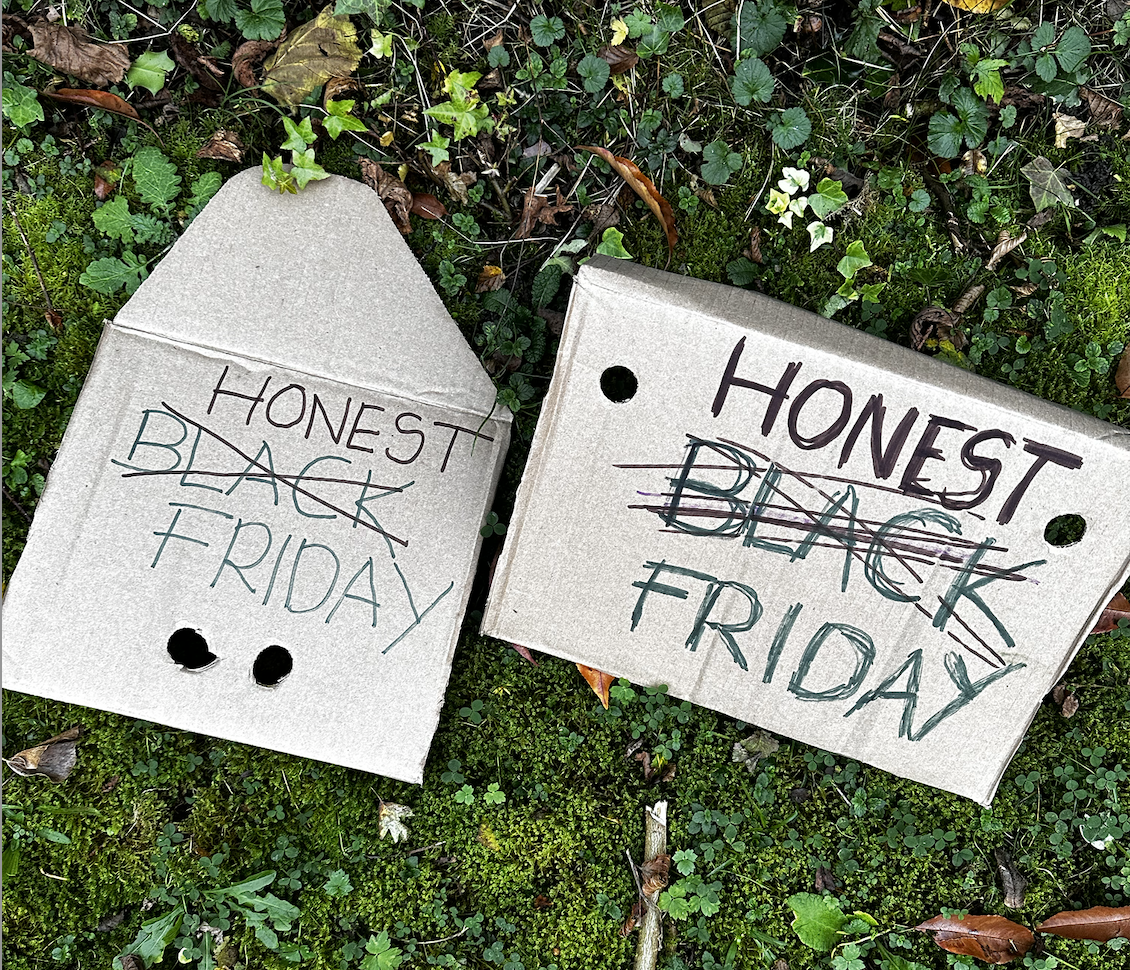 HONEST
BLACK
FRIDAY
HONEST
BLACK
FRIDAY